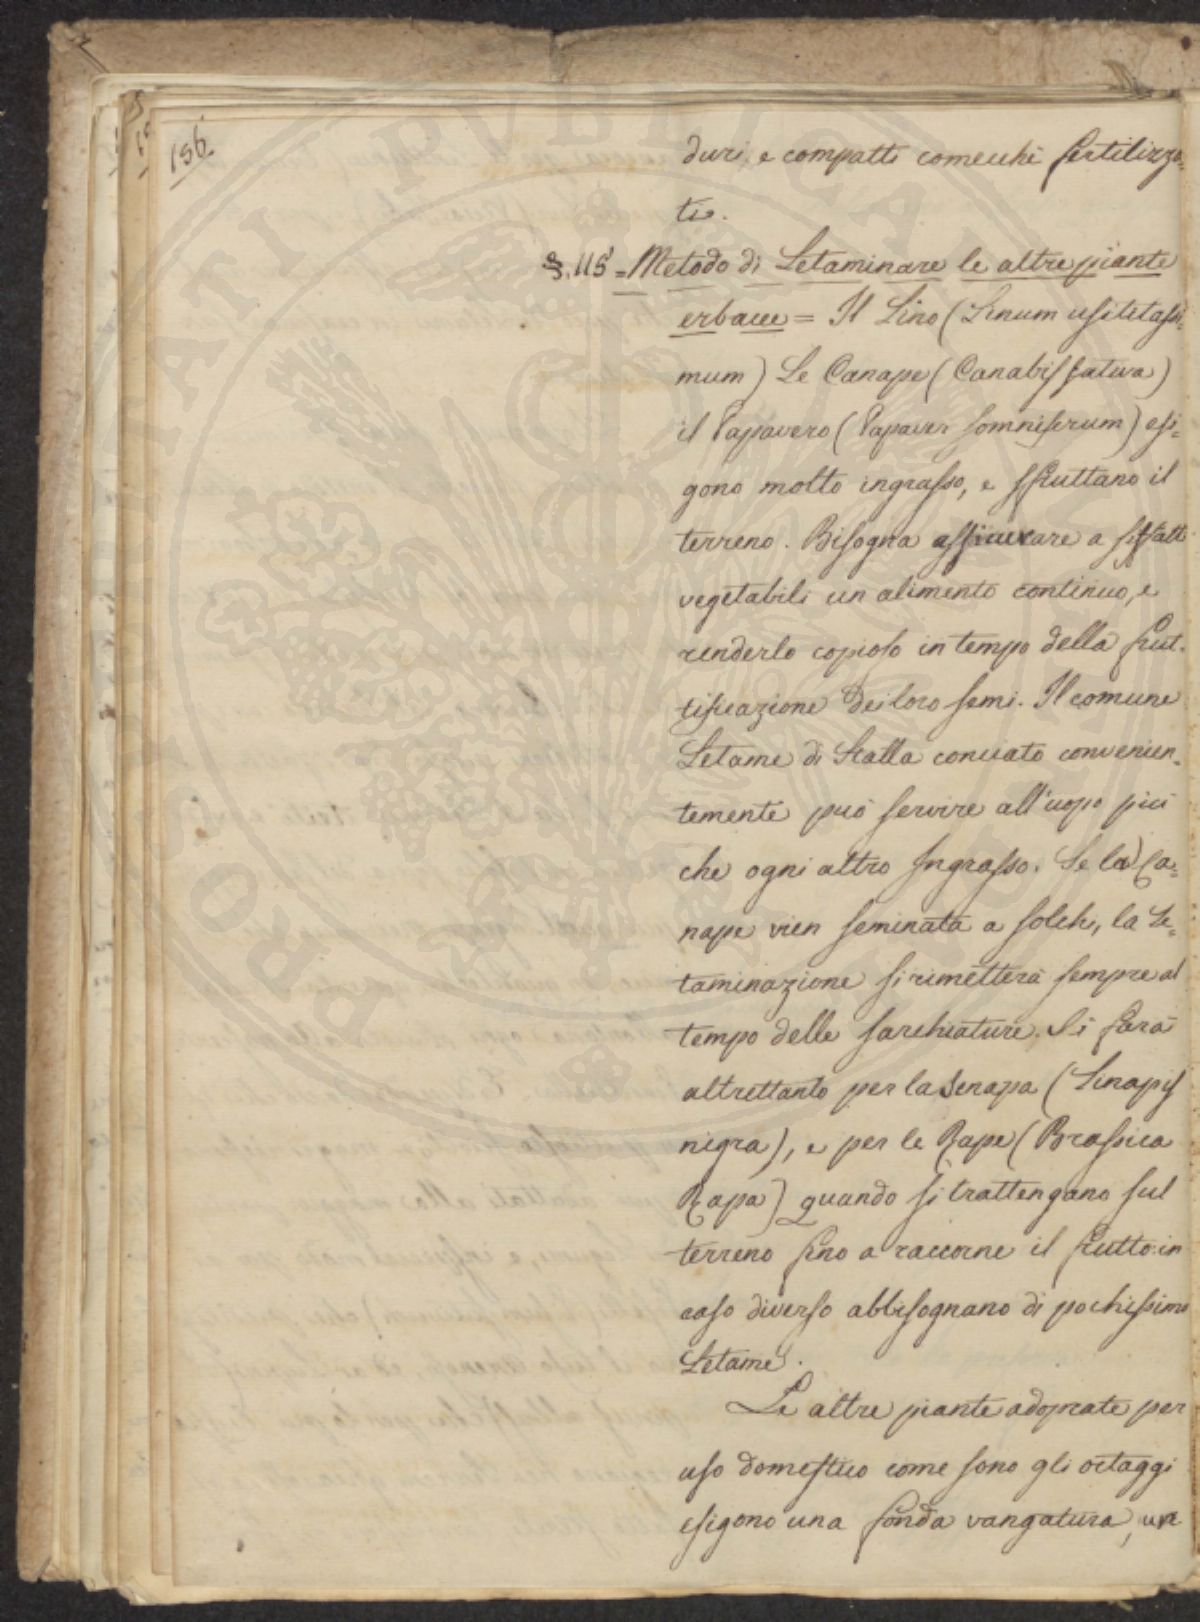 156.
duri, e compatti comecchè fertilizza-
ti.
§. 115 = Metodo di Letaminare le altre piante
erbacee = Il Lino (Linum usitatissi-
mum) Le Canape (Canabis sativa)
il Papavero (Papaver somniferum) esi-
gono molto ingrasso, e sfruttano il
terreno. Bisogna assicurare a siffatti
vegetabili un alimento continuo, e
renderlo copioso in tempo della frut-
tificazione dei loro semi. Il comune
Letame di Stalla conciato convenien-
temente può servire all'uopo più
che ogni altro Ingrasso. Se la Ca-
nape vien seminata a solchi, la Le-
taminazione si rimetterà sempre al
tempo delle sarchiature. Si farà
altrettanto per la Senapa (Sinapis
nigra), e per le Rape (Brassica
Rapa) quando si trattengano sul
terreno fino a raccorne il frutto: in
caso diverso abbisognano di pochissimo
Letame.
Le altre piante adoprate per
uso domestico come sono gli ortaggi
esigono una fonda vangatura, un
PROSPERITATI PVBLICAE